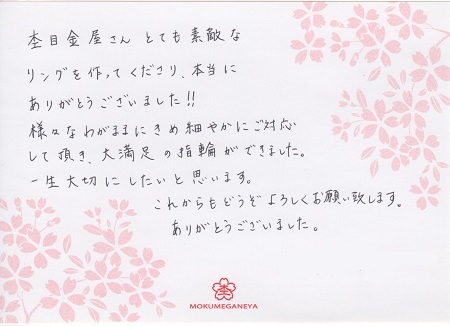 杢目金屋さん とても素敵な
リングを作ってくださり、本当に
ありがとうございました!!
様々なわがままにきめ細やかにご対応
して頂き、大満足の指輪ができました。
一生大切にしたいと思います。
これからもどうぞよろしくお願い致します。
ありがとうございました。
MOKUMEGANEYA